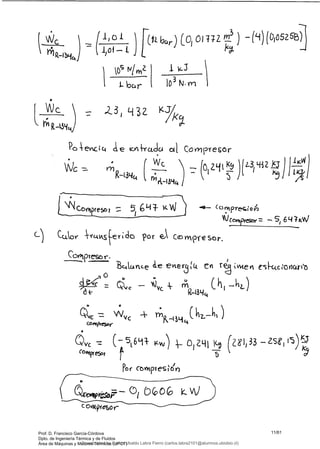 (Ẇc / ṁR-134a) = (1,01 / 1,01-1) [(12 bar)(0,01772 m³/kg) - (4)(0,05258)]
| 10⁵ N/m² / 1 bar | | 1 kJ / 10³ N·m |
(Ẇc / ṁR-134a) = 23,432 kJ/kg
Potencia de entrada al compresor
Ẇc = ṁR-134a (Ẇc / ṁR-134a) = (0,241 kg/s)(23,432 kJ/kg)(1kW / 1 kJ/s)
Ẇcompresor = 5,647 kW ← compresión
Ẇcompresor = -5,647kW
c) Calor transferido por el compresor.
Compresor.
Balance de energía en régimen estacionario
dE/dt = Q̇vc - Ẇvc + ṁR-134a (h₁-h₂)
Q̇vc = Ẇvc + ṁR-134a (h₂-h₁)
compresor
Q̇vc = (-5,647 kW) + 0,241 kg/s (281,33 - 258,15) kJ/kg
compresor
Por compresión
Q̇compresor = -0,0606 kW
compresor
Prof. D. Francisco García-Córdova
Dpto. de Ingeniería Térmica y de Fluidos
Área de Máquinas y Motores Térmicos (UPCT)
11/61